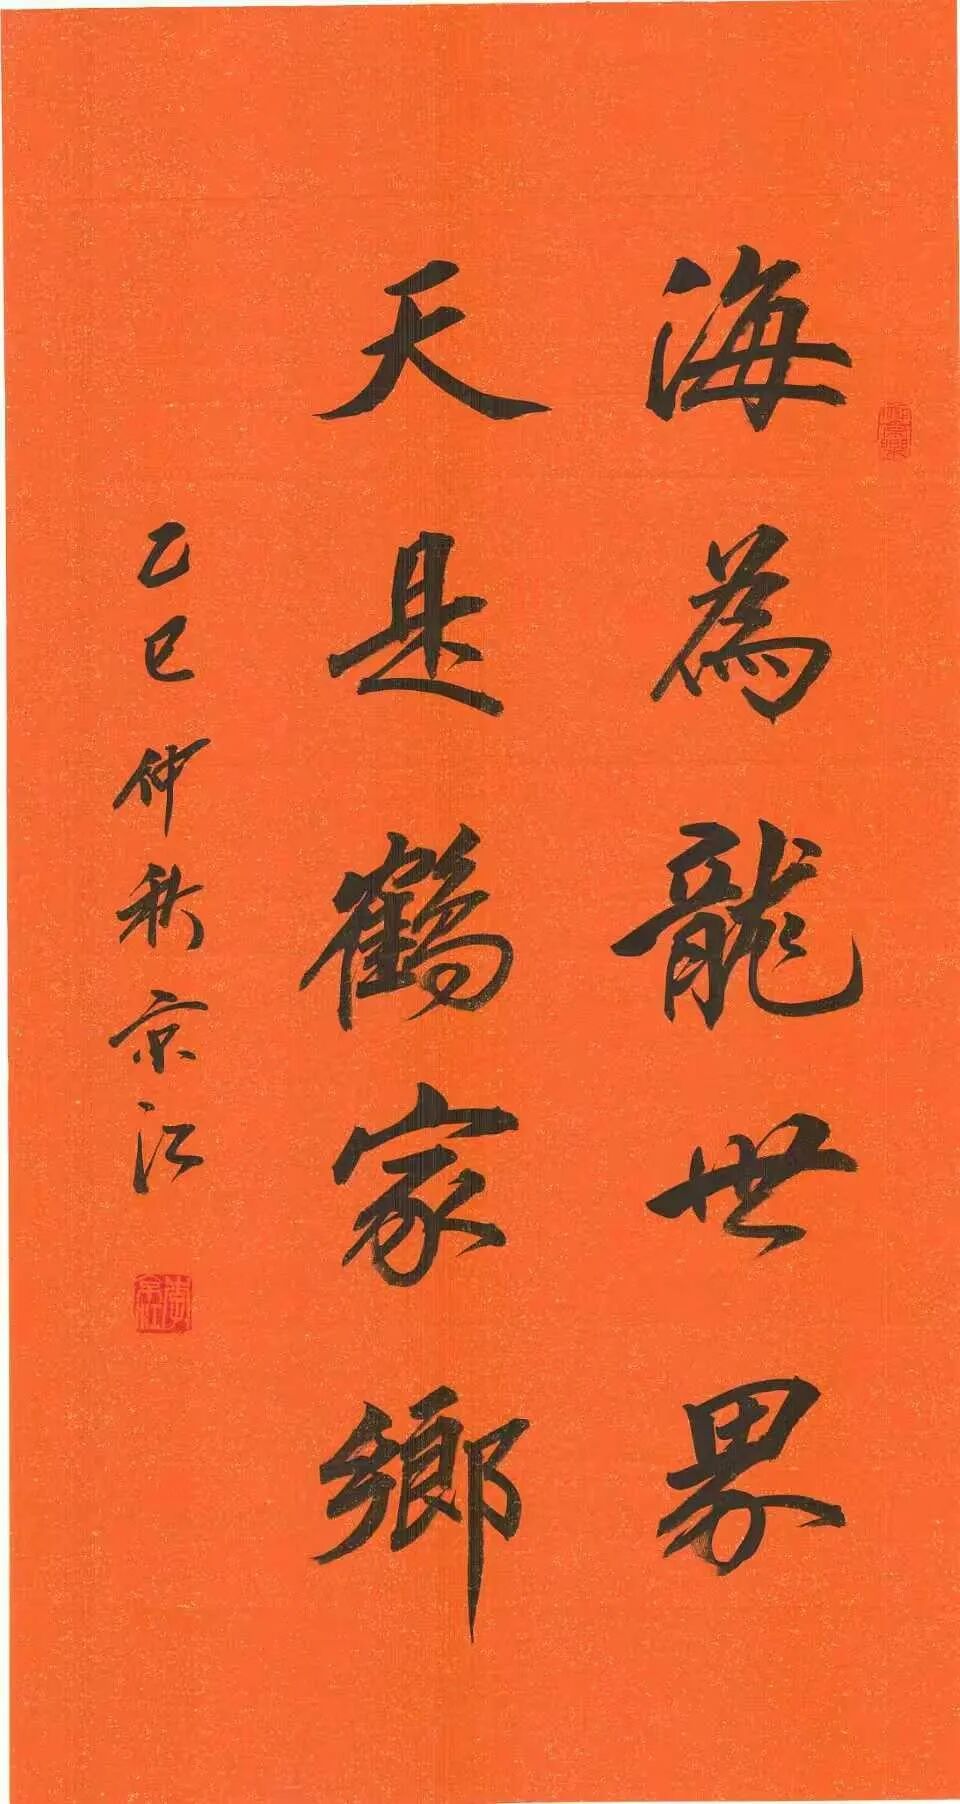 海為龍世界
天是鶴家鄉
乙巳仲秋京江